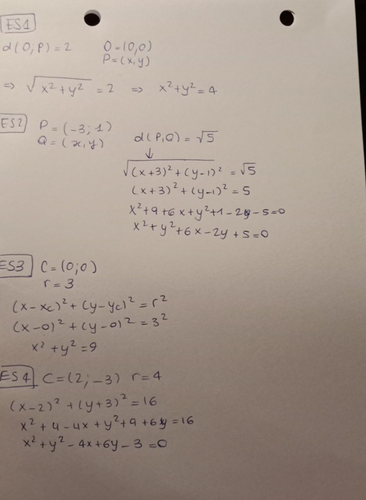 ES1
d(O,P)=2 O=(0,0)
P=(x,y)
⇒ √(x²+y²) = 2 ⇒ x²+y²=4
ES2 P=(-3;1)
Q=(x,y) d(P,Q)=√5
↓
√((x+3)²+(y-1)²) = √5
(x+3)²+(y-1)²=5
x²+9+6x+y²+1-2y-5=0
x²+y²+6x-2y+5=0
ES3 C=(0;0)
r=3
(x-xc)²+(y-yc)²=r²
(x-0)²+(y-0)²=3²
x²+y²=9
ES4 C=(2;-3) r=4
(x-2)²+(y+3)²=16
x²+4-4x+y²+9+6y=16
x²+y²-4x+6y-3=0